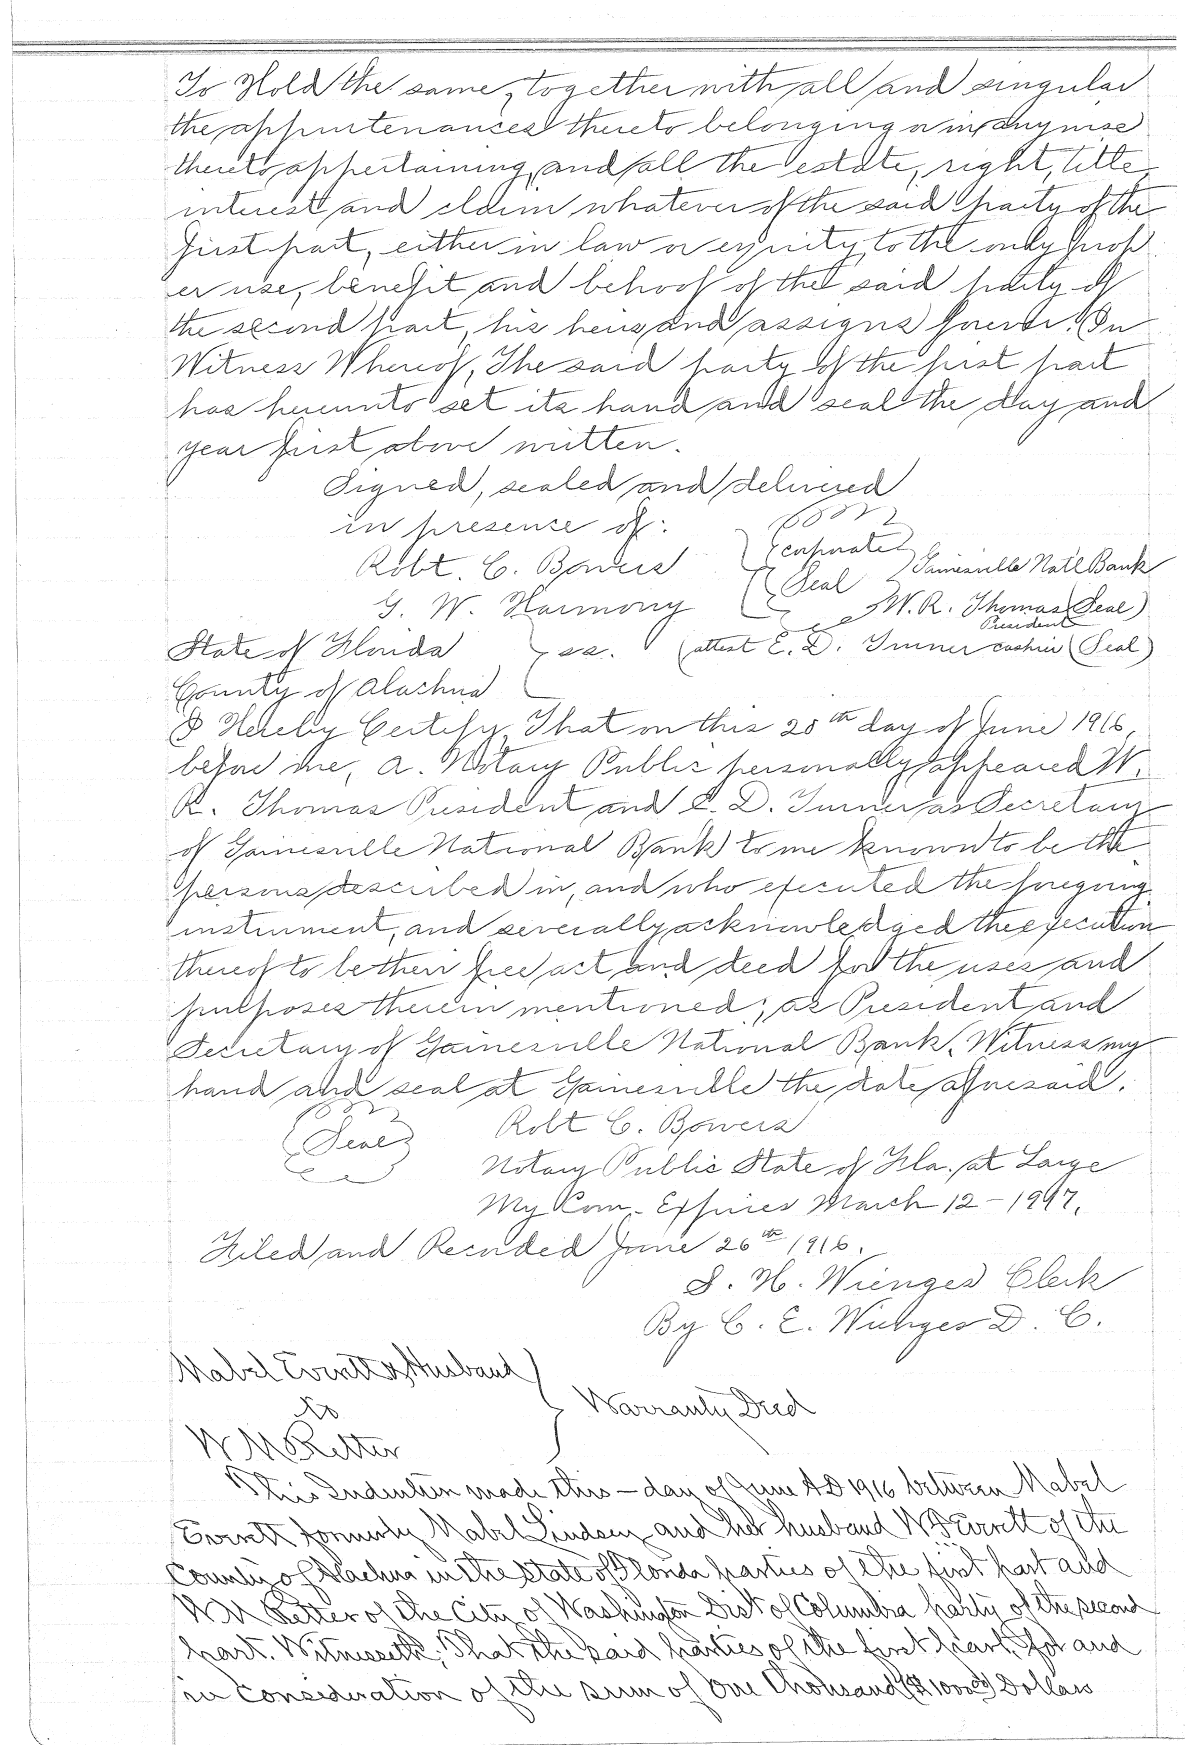 To Hold the same, together with all and singular
the appurtenances thereto belonging or in anywise
thereto appertaining, and all the estate, right, title,
interest and claim whatever of the said party of the
first part, either in law or equity, to the only prop
er use, benefit and behoof of the said party of
the second part, his heirs and assigns forever. In
Witness Whereof, The said party of the first part
has hereunto set its hand and seal the day and
year first above written.
Signed, sealed and delivered
in presence of:
Robt. C. Bowers
G. W. Harmony
Corporate
Seal
Gainesville Nat'l Bank
W. R. Thomas (Seal)
President
attest E. D. Turner cashier (Seal)
State of Florida
ss.
County of Alachua
I Hereby Certify, That on this 20th day of June 1916,
before me, a. Notary Public personally appeared W.
R. Thomas President and E. D. Turner as Secretary
of Gainesville National Bank to me known to be the
persons described in, and who executed the foregoing
instrument, and severally acknowledged the execution
thereof to be their free act and deed for the uses and
purposes therein mentioned; as President and
Secretary of Gainesville National Bank. Witness my
hand and seal at Gainesville the date aforesaid.
Seal
Robt C. Bowers
Notary Public State of Fla. at Large
My Com. Expires March 12 - 1917.
Filed and Recorded June 26th 1916.
S. H. Wienges Clerk
By C. E. Wienges D. C.
Mabel Everett & Husband
to
W M Retter
Warranty Deed
This Indenture made this — day of June A D 1916 between Mabel
Everett formerly Mabel Lindsey and her husband W Everett of the
County of Alachua in the State of Florida parties of the first part and
W M Retter of the City of Washington Dist of Columbia party of the second
part. Witnesseth; That the said parties of the first part, for and
in consideration of the sum of One Thousand ($1000.00) Dollars